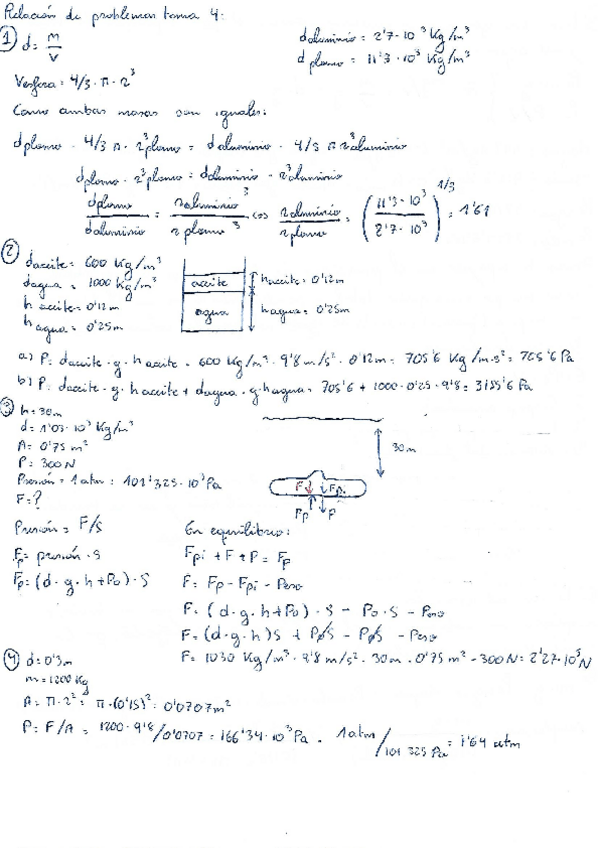 Relación de problemas tema 4:
1 d = m/V
daluminio = 2'7·10³ Kg/m³
dplomo = 11'3·10³ Kg/m³
Vesfera = 4/3·π·r³
Como ambas masas son iguales:
dplomo · 4/3 π · r³plomo = daluminio · 4/3 π r³aluminio
dplomo · r³plomo = daluminio · r³aluminio
dplomo/daluminio = raluminio³/rplomo³ ⇔ raluminio/rplomo = (11'3·10³/2'7·10³)^1/3 = 1'61
2 daceite = 600 Kg/m³
dagua = 1000 Kg/m³
h aceite = 0'12m
h agua = 0'25m
aceite
agua
haceite = 0'12m
hagua = 0'25m
a) P = daceite · g · haceite = 600 Kg/m³ · 9'8 m/s² · 0'12m = 705'6 Kg/m·s² = 705'6 Pa
b) P = daceite · g · haceite + dagua · g · hagua = 705'6 + 1000·0'25·9'8 = 3155'6 Pa
3 h = 30m
d = 1'03·10³ Kg/m³
A = 0'75 m²
P = 300N
Presión = 1 atm = 101'325·10³ Pa
F = ?
30m
F Fpi
Fp P
Presión = F/S
Fp = presión · S
Fp = (d·g·h + P0) · S
En equilibrio:
Fpi + F + P = Fp
F = Fp - Fpi - Peso
F = (d·g·h + P0) · S - P0·S - Peso
F = (d·g·h)S + P0S - P0S - Peso
F = 1030 Kg/m³ · 9'8 m/s² · 30m · 0'75 m² - 300N = 2'27·10⁵N
4 d = 0'3m
m = 1200 Kg
A = π·r² = π·(0'15)² = 0'0707m²
P = F/A = 1200·9'8/0'0707 = 166'34·10³ Pa · 1 atm/101 325 Pa = 1'64 atm